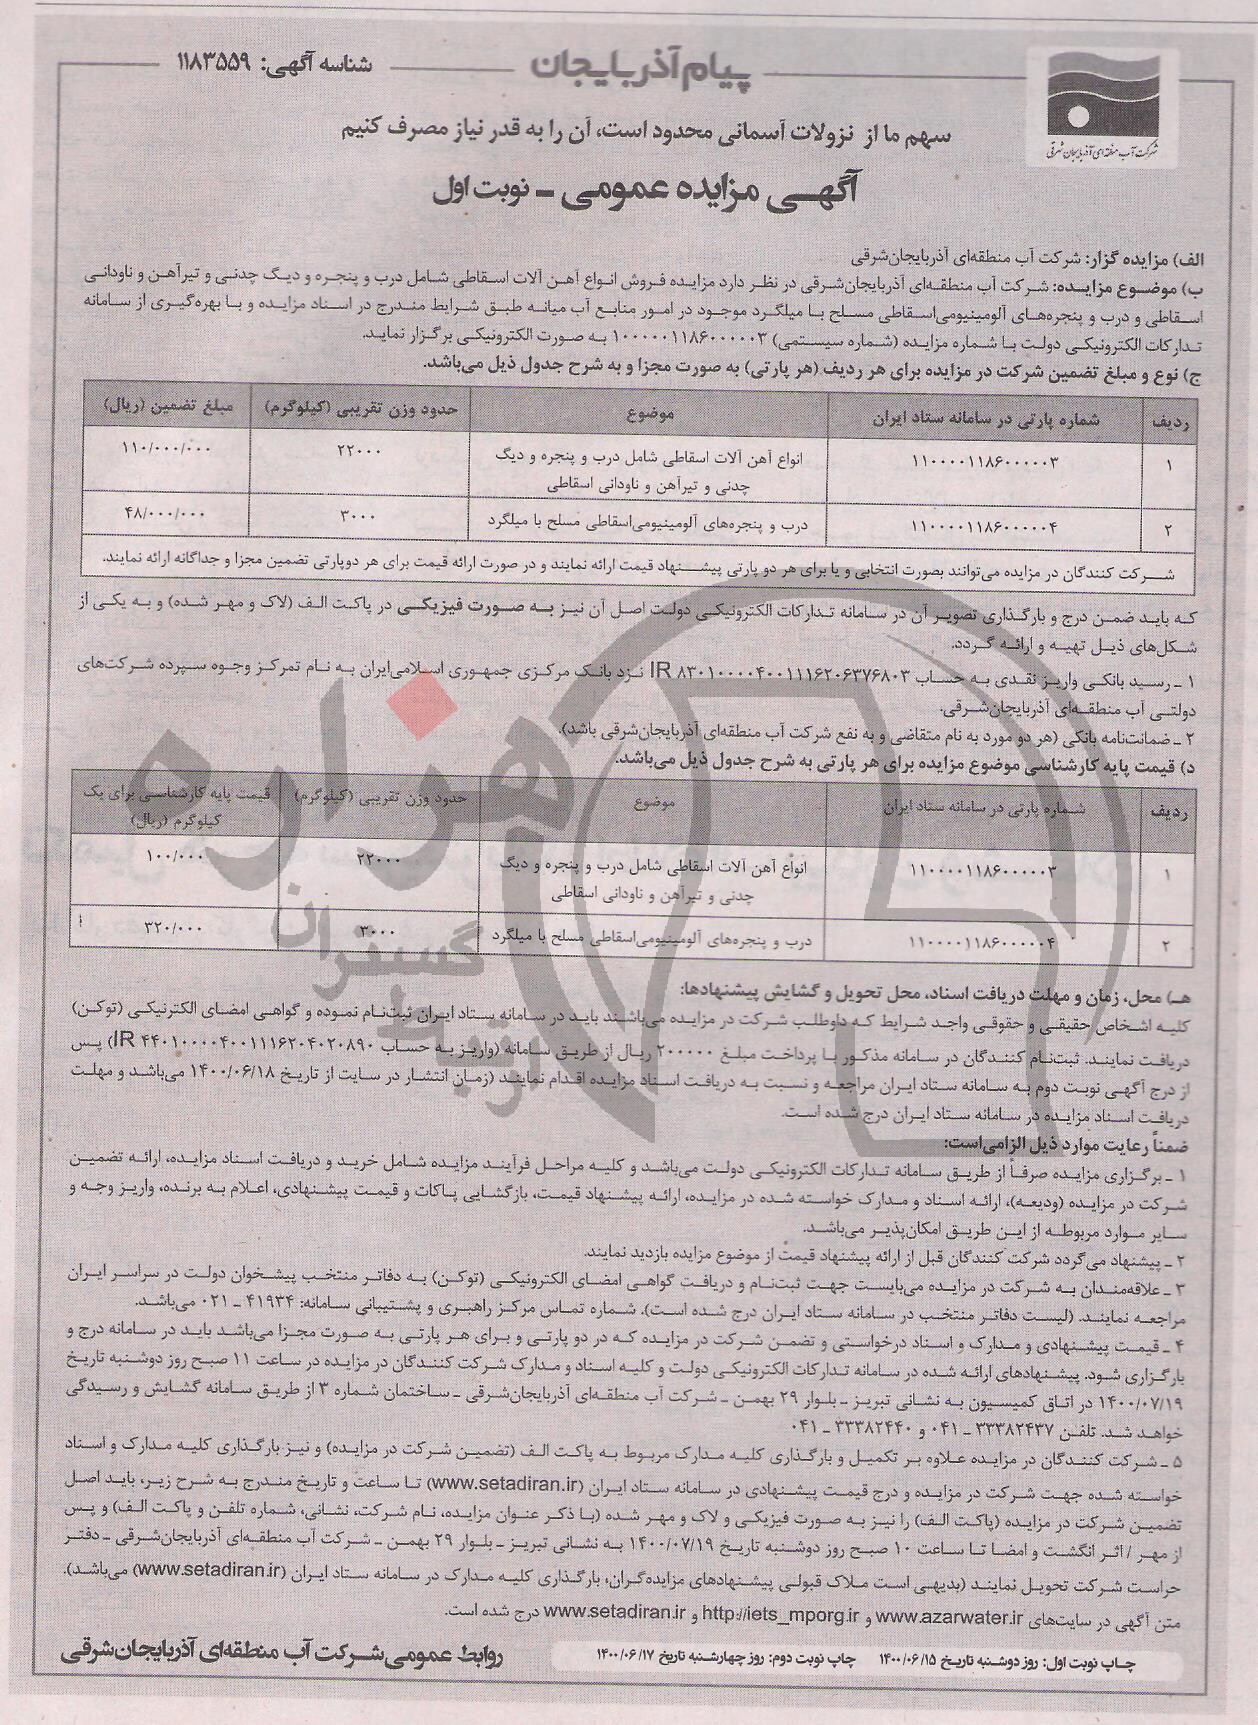 شناسه آگهی: ۱۱۸۳۵۵۹
پیام آذربایجان
شرکت آب منطقه‌ای آذربایجان شرقی
سهم ما از نزولات آسمانی محدود است، آن را به قدر نیاز مصرف کنیم
آگهی مزایده عمومی ـ نوبت اول
الف) مزایده گزار: شرکت آب منطقه‌ای آذربایجان‌شرقی
ب) موضوع مزایده: شرکت آب منطقه‌ای آذربایجان‌شرقی در نظر دارد مزایده فروش انواع آهن آلات اسقاطی شامل درب و پنجره و دیگ چدنی و تیرآهن و ناودانی
اسقاطی و درب و پنجره‌های آلومینیومی‌اسقاطی مسلح با میلگرد موجود در امور منابع آب میانه طبق شرایط مندرج در اسناد مزایده و با بهره‌گیری از سامانه
تدارکات الکترونیکی دولت با شماره مزایده (شماره سیستمی) ۱۰۰۰۰۰۱۱۸۶۰۰۰۰۰۳ به صورت الکترونیکی برگزار نماید.
ج) نوع و مبلغ تضمین شرکت در مزایده برای هر ردیف (هر پارتی) به صورت مجزا و به شرح جدول ذیل می‌باشد.
ردیف شماره پارتی در سامانه ستاد ایران موضوع حدود وزن تقریبی (کیلوگرم) مبلغ تضمین (ریال)
۱ ۱۱۰۰۰۰۱۱۸۶۰۰۰۰۰۳ انواع آهن آلات اسقاطی شامل درب و پنجره و دیگ ۲۲۰۰۰ ۱۱۰/۰۰۰/۰۰۰
چدنی و تیرآهن و ناودانی اسقاطی
۲ ۱۱۰۰۰۰۱۱۸۶۰۰۰۰۰۴ درب و پنجره‌های آلومینیومی‌اسقاطی مسلح با میلگرد ۳۰۰۰ ۴۸/۰۰۰/۰۰۰
شرکت کنندگان در مزایده می‌توانند بصورت انتخابی و یا برای هر دو پارتی پیشنهاد قیمت ارائه نمایند و در صورت ارائه قیمت برای هر دوپارتی تضمین مجزا و جداگانه ارائه نمایند.
که باید ضمن درج و بارگذاری تصویر آن در سامانه تدارکات الکترونیکی دولت اصل آن نیز به صورت فیزیکی در پاکت الف (لاک و مهر شده) و به یکی از
شکل‌های ذیل تهیه و ارائه گردد.
۱ ـ رسید بانکی واریز نقدی به حساب IR ۸۳۰۱۰۰۰۰۴۰۰۱۱۱۶۲۰۶۳۷۶۸۰۳ نزد بانک مرکزی جمهوری اسلامی‌ایران به نام تمرکز وجوه سپرده شرکت‌های
دولتی آب منطقه‌ای آذربایجان‌شرقی.
۲ ـ ضمانت‌نامه بانکی (هر دو مورد به نام متقاضی و به نفع شرکت آب منطقه‌ای آذربایجان‌شرقی باشد).
د) قیمت پایه کارشناسی موضوع مزایده برای هر پارتی به شرح جدول ذیل می‌باشد.
ردیف شماره پارتی در سامانه ستاد ایران موضوع حدود وزن تقریبی (کیلوگرم) قیمت پایه کارشناسی برای یک
کیلوگرم (ریال)
۱ ۱۱۰۰۰۰۱۱۸۶۰۰۰۰۰۳ انواع آهن آلات اسقاطی شامل درب و پنجره و دیگ ۲۲۰۰۰ ۱۰۰/۰۰۰
چدنی و تیرآهن و ناودانی اسقاطی
۲ ۱۱۰۰۰۰۱۱۸۶۰۰۰۰۰۴ درب و پنجره‌های آلومینیومی‌اسقاطی مسلح با میلگرد ۳۰۰۰ ۳۲۰/۰۰۰
هـ) محل، زمان و مهلت دریافت اسناد، محل تحویل و گشایش پیشنهادها:
کلیه اشخاص حقیقی و حقوقی واجد شرایط که داوطلب شرکت در مزایده می‌باشند باید در سامانه ستاد ایران ثبت‌نام نموده و گواهی امضای الکترنیکی (توکن)
دریافت نمایند. ثبت‌نام کنندگان در سامانه مذکور با پرداخت مبلغ ۲۰۰۰۰۰ ریال از طریق سامانه (واریز به حساب IR ۴۴۰۱۰۰۰۰۴۰۰۱۱۱۶۲۰۴۰۲۰۸۹۰) پس
از درج آگهی نوبت دوم به سامانه ستاد ایران مراجعه و نسبت به دریافت اسناد مزایده اقدام نمایند (زمان انتشار در سایت از تاریخ ۱۴۰۰/۰۶/۱۸ می‌باشد و مهلت
دریافت اسناد مزایده در سامانه ستاد ایران درج شده است.
ضمناً رعایت موارد ذیل الزامی‌است:
۱ ـ برگزاری مزایده صرفاً از طریق سامانه تدارکات الکترونیکی دولت می‌باشد و کلیه مراحل فرآیند مزایده شامل خرید و دریافت اسناد مزایده، ارائه تضمین
شرکت در مزایده (ودیعه)، ارائه اسناد و مدارک خواسته شده در مزایده، ارائه پیشنهاد قیمت، بازگشایی پاکات و قیمت پیشنهادی، اعلام به برنده، واریز وجه و
سایر موارد مربوطه از این طریق امکان‌پذیر می‌باشد.
۲ ـ پیشنهاد می‌گردد شرکت کنندگان قبل از ارائه پیشنهاد قیمت از موضوع مزایده بازدید نمایند.
۳ ـ علاقه‌مندان به شرکت در مزایده می‌بایست جهت ثبت‌نام و دریافت گواهی امضای الکترونیکی (توکن) به دفاتر منتخب پیشخوان دولت در سراسر ایران
مراجعه نمایند. (لیست دفاتر منتخب در سامانه ستاد ایران درج شده است). شماره تماس مرکز راهبری و پشتیبانی سامانه: ۴۱۹۳۴ ـ ۰۲۱ می‌باشد.
۴ ـ قیمت پیشنهادی و مدارک و اسناد درخواستی و تضمن شرکت در مزایده که در دو پارتی و برای هر پارتی به صورت مجزا می‌باشد باید در سامانه درج و
بارگزاری شود. پیشنهادهای ارائه شده در سامانه تدارکات الکترونیکی دولت و کلیه اسناد و مدارک شرکت کنندگان در مزایده در ساعت ۱۱ صبح روز دوشنبه تاریخ
۱۴۰۰/۰۷/۱۹ در اتاق کمیسیون به نشانی تبریز ـ بلوار ۲۹ بهمن ـ شرکت آب منطقه‌ای آذربایجان‌شرقی ـ ساختمان شماره ۳ از طریق سامانه گشایش و رسیدگی
خواهد شد. تلفن ۳۳۳۸۲۴۳۷ ـ ۰۴۱ و ۳۳۳۸۲۴۴۰ ـ ۰۴۱
۵ ـ شرکت کنندگان در مزایده علاوه بر تکمیل و بارگذاری کلیه مدارک مربوط به پاکت الف (تضمین شرکت در مزایده) و نیز بارگذاری کلیه مدارک و اسناد
خواسته شده جهت شرکت در مزایده و درج قیمت پیشنهادی در سامانه ستاد ایران (www.setadiran.ir) تا ساعت و تاریخ مندرج به شرح زیر، باید اصل
تضمین شرکت در مزایده (پاکت الف) را نیز به صورت فیزیکی و لاک و مهر شده (با ذکر عنوان مزایده، نام شرکت، نشانی، شماره تلفن و پاکت الف) و پس
از مهر / اثر انگشت و امضا تا ساعت ۱۰ صبح روز دوشنبه تاریخ ۱۴۰۰/۰۷/۱۹ به نشانی تبریز ـ بلوار ۲۹ بهمن ـ شرکت آب منطقه‌ای آذربایجان‌شرقی ـ دفتر
حراست شرکت تحویل نمایند (بدیهی است ملاک قبولی پیشنهادهای مزایده‌گران، بارگذاری کلیه مدارک در سامانه ستاد ایران (www.setadiran.ir) می‌باشد).
متن آگهی در سایت‌های www.azarwater.ir و http://iets_mporg.ir و www.setadiran.ir درج شده است.
چاپ نوبت اول: روز دوشنبه تاریخ ۱۴۰۰/۰۶/۱۵ چاپ نوبت دوم: روز چهارشنبه تاریخ ۱۴۰۰/۰۶/۱۷
روابط عمومی شرکت آب منطقه‌ای آذربایجان‌شرقی
هزاره
گستران
ارتباط